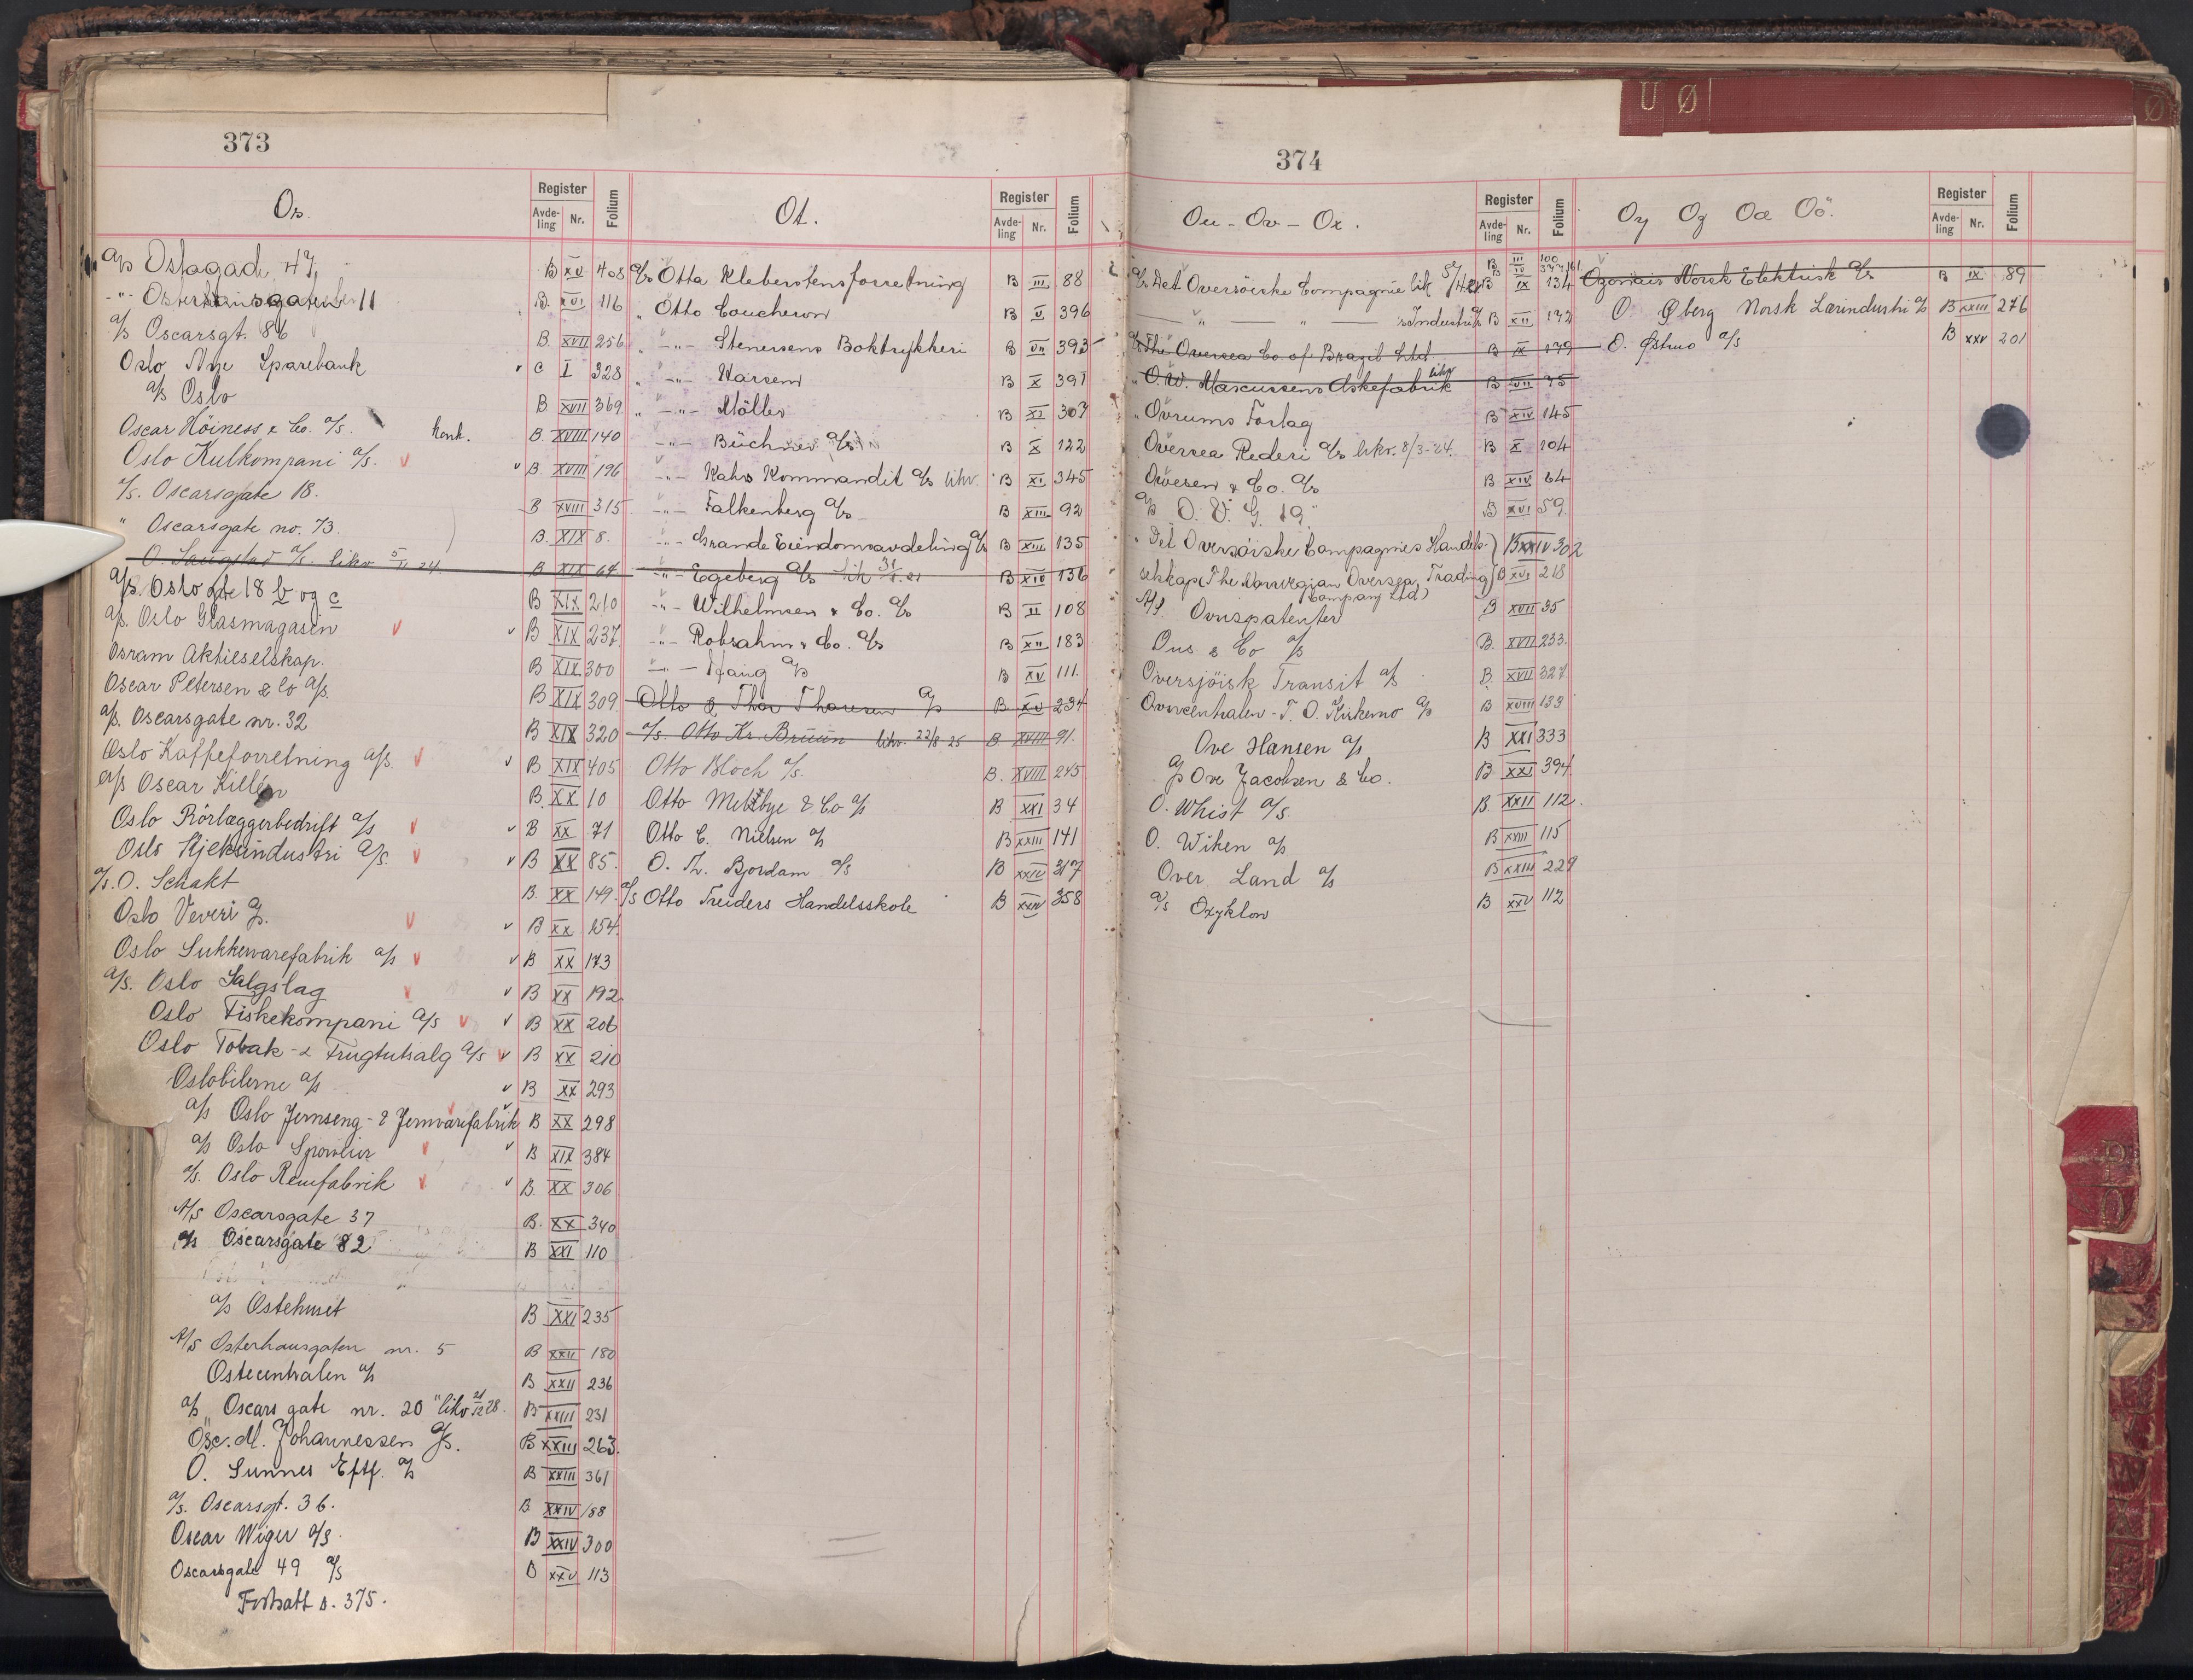 373
Os.
Register
Avde-ling Nr. Folium
A/S Osfagade 47, B XV 408
-"- Osterhausgaten 11 B. XVI 116
A/S Oscarsgt. 86 B. XVII 256
Oslo Nye Sparebank C I 328
A/S Oslo B XVII 369
Oscar Höiness & Co. A/S. Konk. B. XVIII 140
Oslo Kulkompani A/S. B. XVIII 196
A/S. Oscarsgate 18. B XVIII 315
" Oscarsgate no. 73. B. XIX 8.
O. Saugstad A/S. likv 5/11 24. B XIX 64
A/S. Oslo gte 18 b og c B XIX 210
A/S. Oslo Glasmagasin B XIX 237
Osram Aktieselskap. B XIX 300
Oscar Petersen & Co A/S. B XIX 309
A/S. Oscarsgate nr. 32 B XIX 320
Oslo Kaffeforretning A/S. B XIX 405
A/S Oscar Killén B. XX 10
Oslo Rörlæggerbedrift A/S B XX 71
Oslo Kjeksindustri A/S. B XX 85.
A/S. O. Schakt B. XX 149.
Oslo Veveri A/S. B XX 154.
Oslo Sukkervarefabrik A/S B XX 173
A/S. Oslo Salgslag B XX 192.
Oslo Fiskekompani A/S B XX 206
Oslo Tobak- & Frugtutsalg A/S B XX 210
Oslobilerne A/S B XX 293
A/S Oslo Jernseng- & Jernvarefabrik B XX 298
A/S Oslo B XIX 384
A/S. Oslo Remfabrik B. XX 306
A/S Oscarsgate 37 B. XX 340
A/S Oscarsgate 82 B XXI 110
A/S Ostehuset B XXI 235
A/S Osterhausgaten nr. 5 B XXII 180
Ostecentralen A/S B XXII 236
A/S Oscars gate nr. 20 "likv 21/12 28. B XXIII 231
Osc. M. Johannessen A/S. B XXIII 263.
O. Sunnes Eftf. A/S B XXIII 361
A/S. Oscarsgt. 36. B XXIV 188
Oscar Wiger A/S. B XXIV 300
Oscarsgate 49 A/S B XXV 113
Fortsatt s. 375.
Ot.
Register
Avde-ling Nr. Folium
A/S Otta Kleberstensforretning B III 88
" Otto Coucheron B V 396
" -"- Stenersens Boktrykkeri B VII 393
" -"- Harsem B X 391
" -"- Möller B XI 307
-"- Büchner A/S B X 122
-"- Kahrs Kommandit A/S likv. B XI 345
-"- Falkenberg A/S B XIII 92
-"- Grande Eiendomsavdeling A/S B XIII 135
-"- Egeberg A/S lik 31/8. 21 B XIV 136
-"- Wilhelmsen & Co. A/S B II 108
-"- Robsahm & Co. A/S B XII 183
-"- Haug A/S B XV 111.
Otto & Thor Thoresen A/S B XV 234
A/S. Otto Kr. Bruun likv. 22/8 25 B. XVIII 91.
Otto Bloch A/S. B. XVIII 245
Otto Meltbye & Co A/S B XXI 34
Otto C. Nielsen A/S B XXIII 141
O. Th. Bjordam A/S B XXIV 317
A/S Otto Treiders Handelsskole B XXIV 358
374
Ou - Ov - Ox.
Register
Avde-ling Nr. Folium
A/S Det Oversöiske Compagnie lik B III 100
B IX 134
— " — " — s Industri A/S B XII 172
A/S The Oversea Co of Brazil Ltd B IX 179
" O. W. Marcussens Æskefabrik likv B VII 75
" Ovrums Forlag B XIV 145
Oversea Rederi A/S likv. 8/3-24. B X 104
Owesen & Co. A/S B XIV 64
A/S O. V. G. 19. B XVI 59.
" Det Oversöiske Compagnies Handels- B XXIV 302
selskap (The Norwegian Oversea Trading B XVI 218
Company Ltd)
A/S Ovnspatenter B XVII 35
Ous & Co A/S B. XVII 233.
Oversjöisk Transit A/S B. XVII 327
Ovncentralen - T. O. Kirkemo A/S B XVIII 133
Ove Hansen A/S B XXI 333
A/S Ove Jacobsen & Co. B XXI 394
O. Whist A/S. B. XXII 112.
O. Wiken A/S B XXIII 115
Over Land A/S B XXIII 229
A/S Oxyklon B XXV 112
Oy Og Oæ Oö.
Register
Avde-ling Nr. Folium
Ozonair Norsk Elektrisk A/S B IX 89
O. Øberg Norsk Lærindustri A/S B XXIII 276
O. Østmo A/S B XXV 201
U Ø
Ø